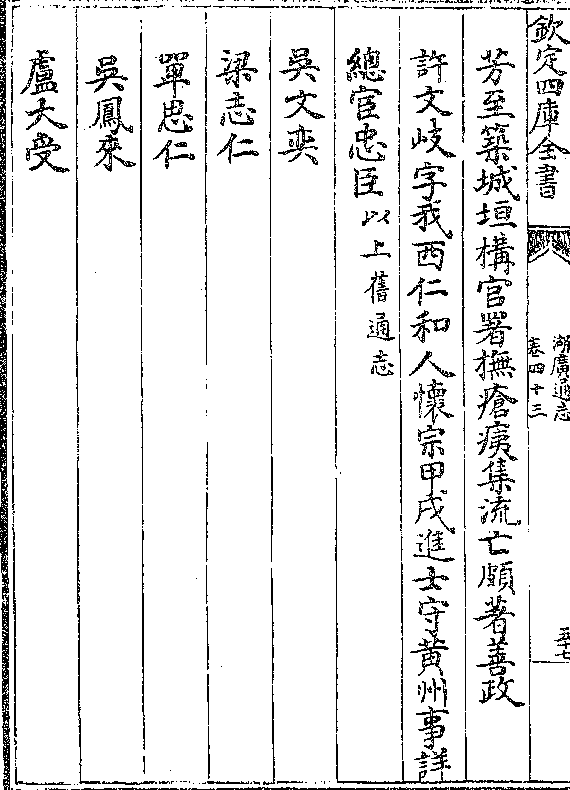 欽定四庫全書
湖廣通志
卷四十三
五十七
芳至築城垣構官署撫瘡痍集流亡頗著善政
許文岐字我西仁和人懷宗甲戌進士守黄州事詳
總官忠臣以上舊通志
吳文奕
梁志仁
單思仁
吳鳳來
盧大受